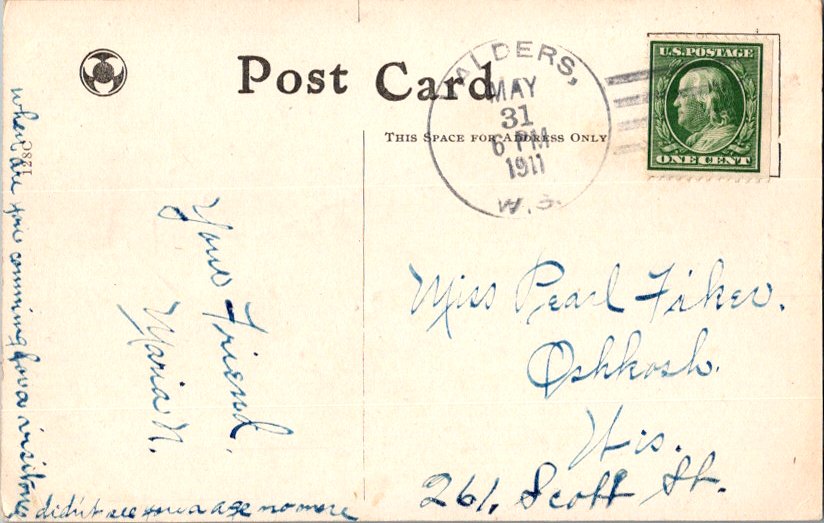 Post Card
THIS SPACE FOR ADDRESS ONLY
ALDERS,
MAY
31
6 PM
1911
W.S.
U.S. POSTAGE
ONE CENT
Miss Pearl Fisher.
Oshkosh.
Wis.
261, Scott St.
Your Friend.
Maria N.
when are you comming for a visit
didn't see you a age no more